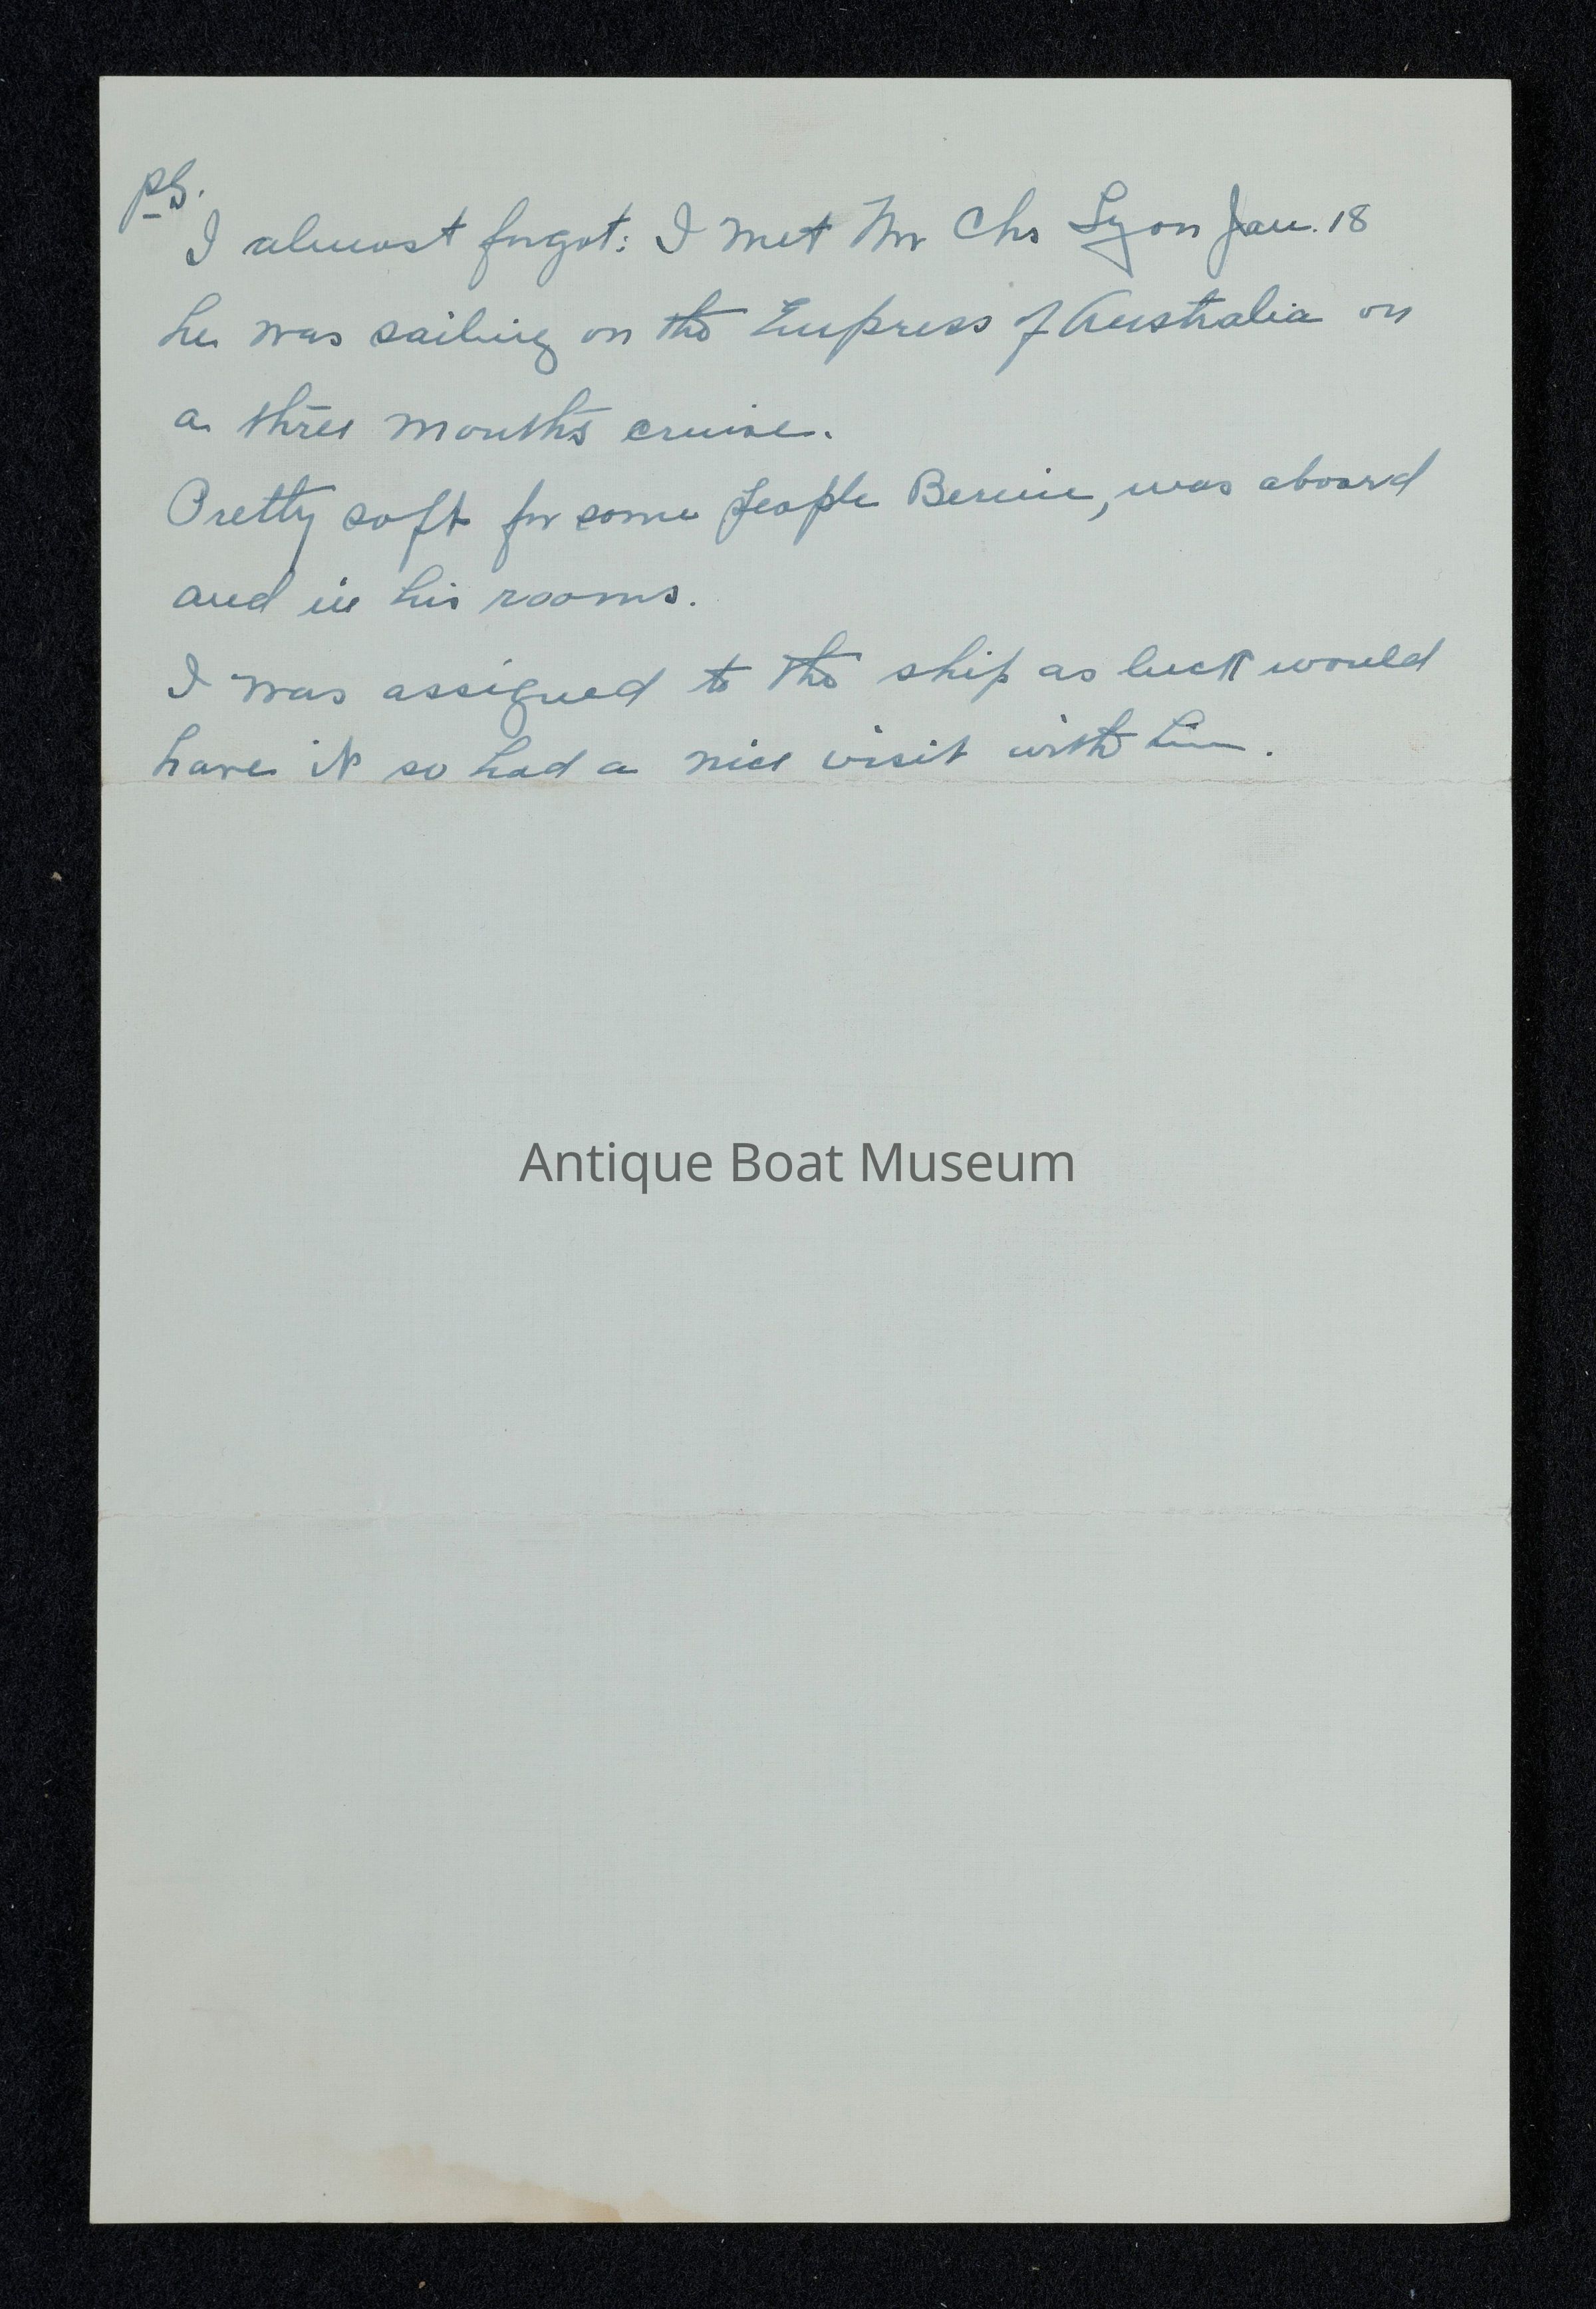 P.S.
I almost forgot: I met Mr Chs Lyon Jan. 18
he was sailing on the Empress of Australia on
a three months cruise.
Pretty soft for some people Bernie, was aboard
and in his rooms.
I was assigned to the ship as luck would
have it so had a nice visit with him.
Antique Boat Museum